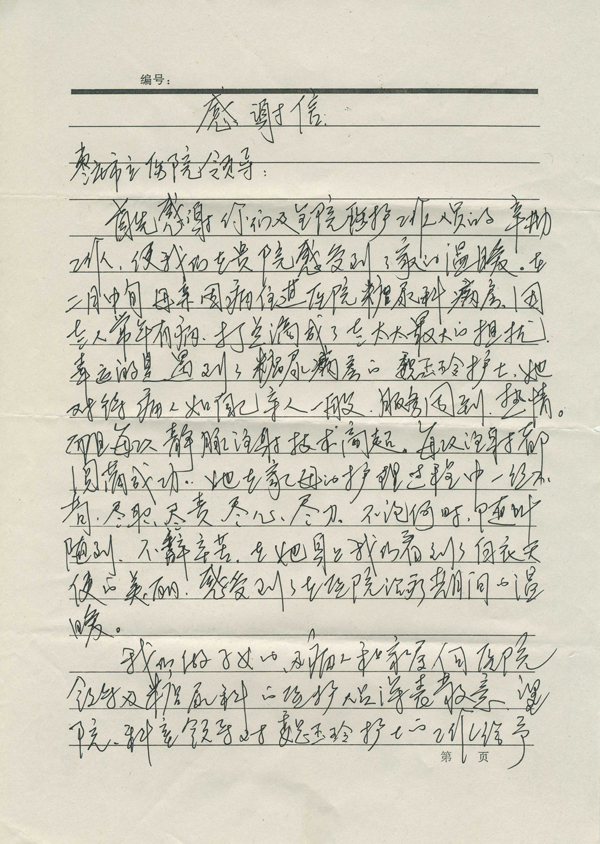 编号：
感谢信
枣庄市立医院领导：
首先感谢你们及全院医护工作人员的辛勤
工作，使我们在贵院感受到了家的温暖。在
二月中旬母亲因病住进医院糖尿科病房，因
老人常年有病，打点滴成了老太太最大的担忧，
幸运的是遇到了糖尿病房的玲护士，她
对待病人如自己亲人一般，服务周到，热情。
而且每次静脉注射技术高超。每次注射都
圆满成功。她在家母的护理过程中一丝不
苟，尽职、尽责、尽心、尽力。不论何时，随叫
随到，不辞辛苦，在她身上我们看到了白衣天
使的美丽，感受到了在医院治疗期间的温
暖。
我们做子女的，及病人和家属向医院
领导及糖尿科的医护人员深表敬意，望
院、科室领导对玲护士的工作给予
第 页